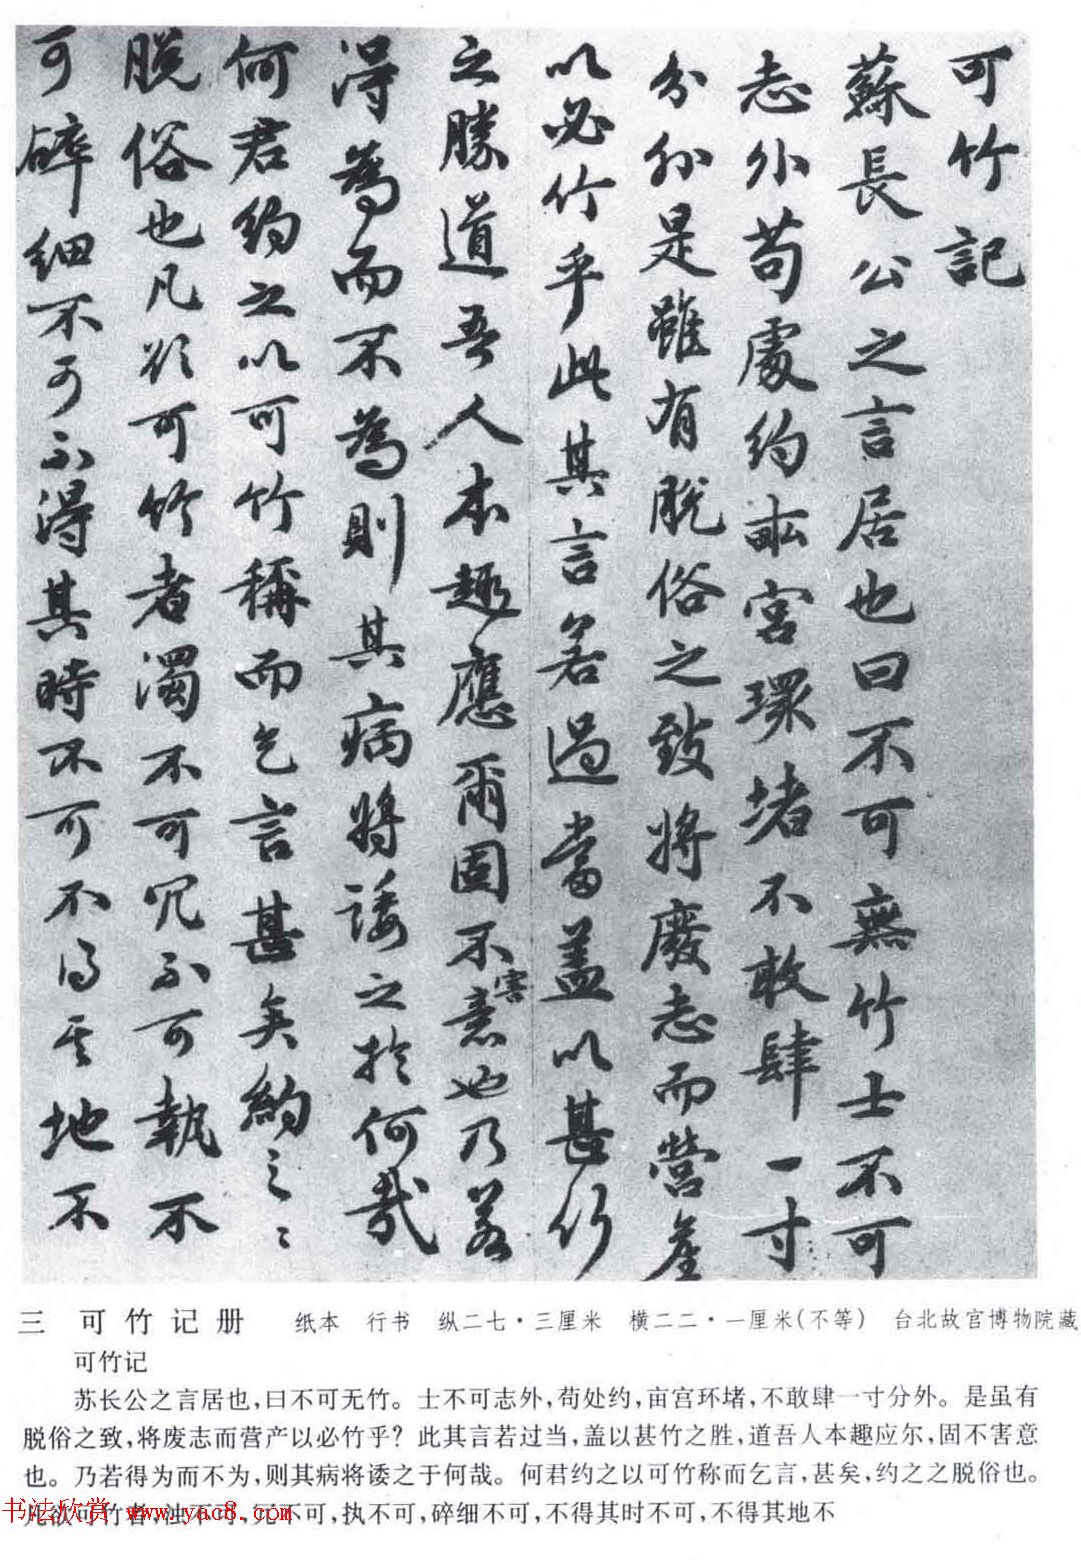 可竹記
蘇長公之言居也曰不可無竹士不可
志外苟處約畝宮環堵不敢肆一寸
分外是雖有脫俗之致將廢志而營產
以必竹乎此其言若過當蓋以甚竹
之勝道吾人本趣應爾固不害意也乃若
得為而不為則其病將諉之於何哉
何君約之以可竹稱而乞言甚矣約之之
脫俗也凡欲可竹者濁不可冗不可執不
可碎細不可不得其時不可不得其地不
三 可竹记册 纸本 行书 纵二七·三厘米 横二二·一厘米(不等) 台北故宫博物院藏
可竹记
苏长公之言居也,曰不可无竹。士不可志外,苟处约,亩宫环堵,不敢肆一寸分外。是虽有
脱俗之致,将废志而营产以必竹乎?此其言若过当,盖以甚竹之胜,道吾人本趣应尔,固不害意
也。乃若得为而不为,则其病将诿之于何哉。何君约之以可竹称而乞言,甚矣,约之之脱俗也。
凡欲可竹者,浊不可,冗不可,执不可,碎细不可,不得其时不可,不得其地不
书法欣赏 www.yac8.com